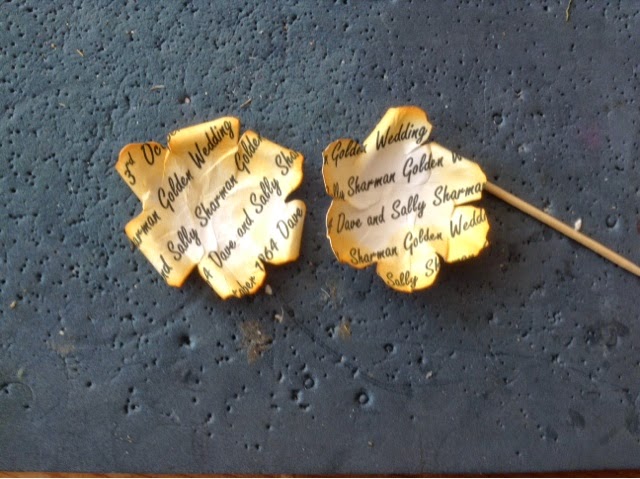 3rd Oc
arman Golden Wedding
nd Sally Sharman Golden
4 Dave and Sally Sha
ober 1964 Dave
n Golden Wedding
lly Sharman Golden W
Dave and Sally Sharman
Sharman Golden Wedding
Sally Sh